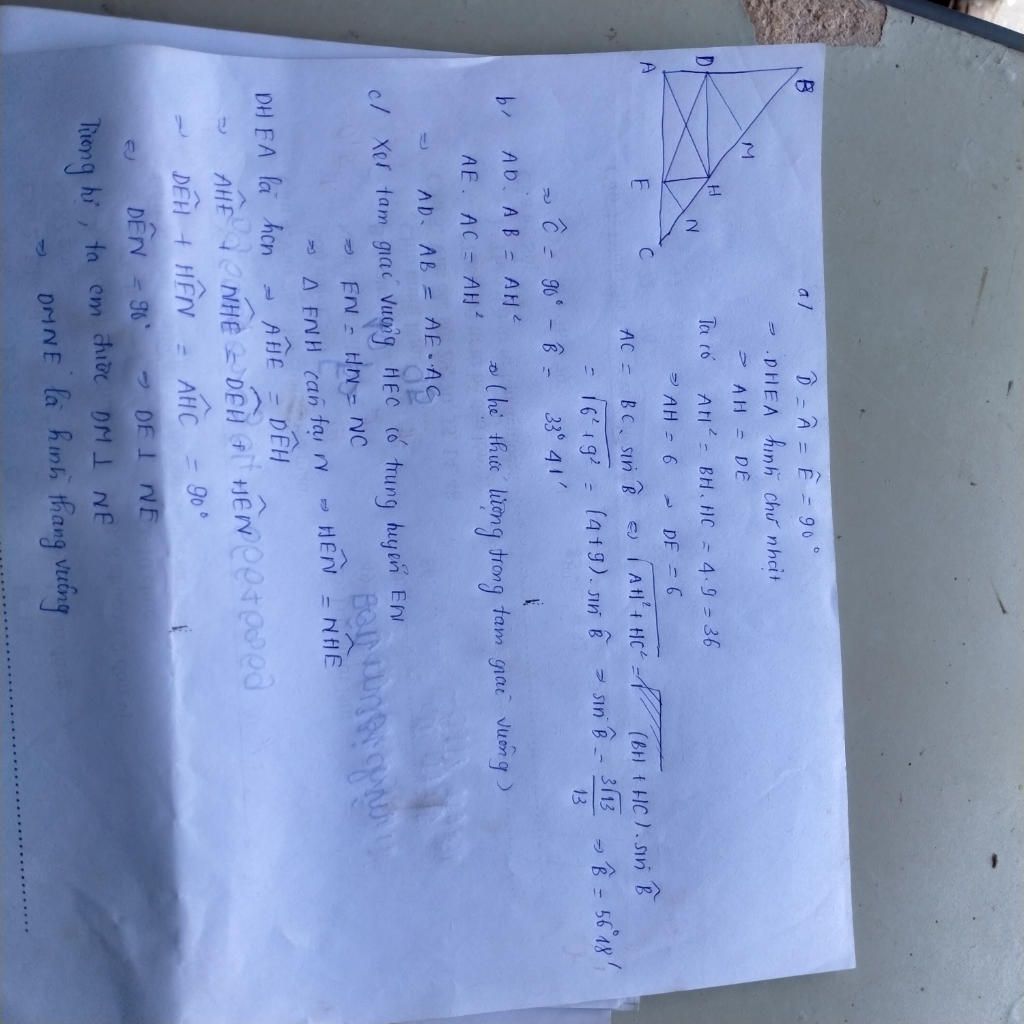 B
D
A
M
H
E
N
C
a/ D̂ = Â = Ê = 90°
⇒ DHEA hình chữ nhật
⇒ AH = DE
Ta có AH² = BH.HC = 4.9 = 36
⇒ AH = 6 ⇒ DE = 6
AC = BC. sin B̂ ⇔ √AH² + HC² = (BH + HC). sin B̂
= √6² + 9² = (4+9). sin B̂ ⇒ sin B̂ = 3√13/13 ⇒ B̂ = 56°18'
⇒ Ĉ = 90° - B̂ = 33°41'
b/ AD. AB = AH² ⇒ (hệ thức lượng trong tam giác vuông)
AE. AC = AH²
⇒ AD. AB = AE. AC
c/ Xét tam giác vuông HEC có trung tuyến EN
⇒ EN = HN = NC
⇒ Δ ENH cân tại N ⇒ HÊN = NĤE
DHEA là hcn ⇒ AĤE = DÊH
⇒ AĤE + NĤE = DÊH + HÊN
⇒ DÊH + HÊN = AĤC = 90°
⇒ DÊN = 90° ⇒ DE ⊥ NE
Tương tự, ta cm được DM ⊥ NE
⇒ DMNE là hình thang vuông